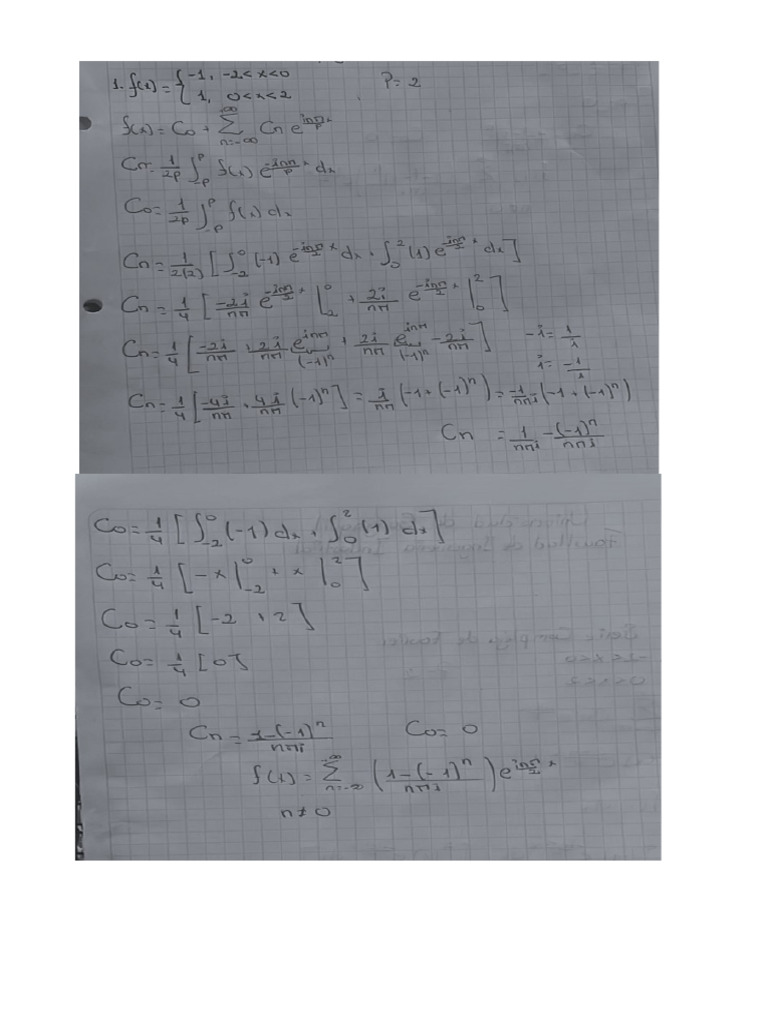 1. f(x) = { -1, -2<x<0
1, 0<x<2
P=2
f(x) = C0 + ∑_{n=-∞}^{∞} Cn e^{inπ/p x}
Cn = 1/2p ∫_{-p}^{p} f(x) e^{-inπ/p x} dx
C0 = 1/2p ∫_{-p}^{p} f(x) dx
Cn = 1/2(2) [∫_{-2}^{0} (-1) e^{-inπ/2 x} dx + ∫_{0}^{2} (1) e^{-inπ/2 x} dx]
Cn = 1/4 [-2i/nπ e^{-inπ/2 x} |_{-2}^{0} + 2i/nπ e^{-inπ/2 x} |_{0}^{2}]
Cn = 1/4 [-2i/nπ + 2i/nπ e^{inπ} + 2i/nπ e^{inπ} - 2i/nπ] -i = 1/i
(-1)^n (-1)^n i = -1/i
Cn = 1/4 [-4i/nπ + 4i/nπ (-1)^n] = i/nπ (-1 + (-1)^n) = -1/nπi (-1 + (-1)^n)
Cn = 1/nπi - (-1)^n/nπi
C0 = 1/4 [∫_{-2}^{0} (-1) dx + ∫_{0}^{2} (1) dx]
C0 = 1/4 [-x |_{-2}^{0} + x |_{0}^{2}]
C0 = 1/4 [-2 + 2]
C0 = 1/4 [0]
C0 = 0
Cn = 1-(-1)^n/nπi C0 = 0
f(x) = ∑_{n=-∞}^{∞} (1-(-1)^n/nπi) e^{inπ/2 x}
n≠0